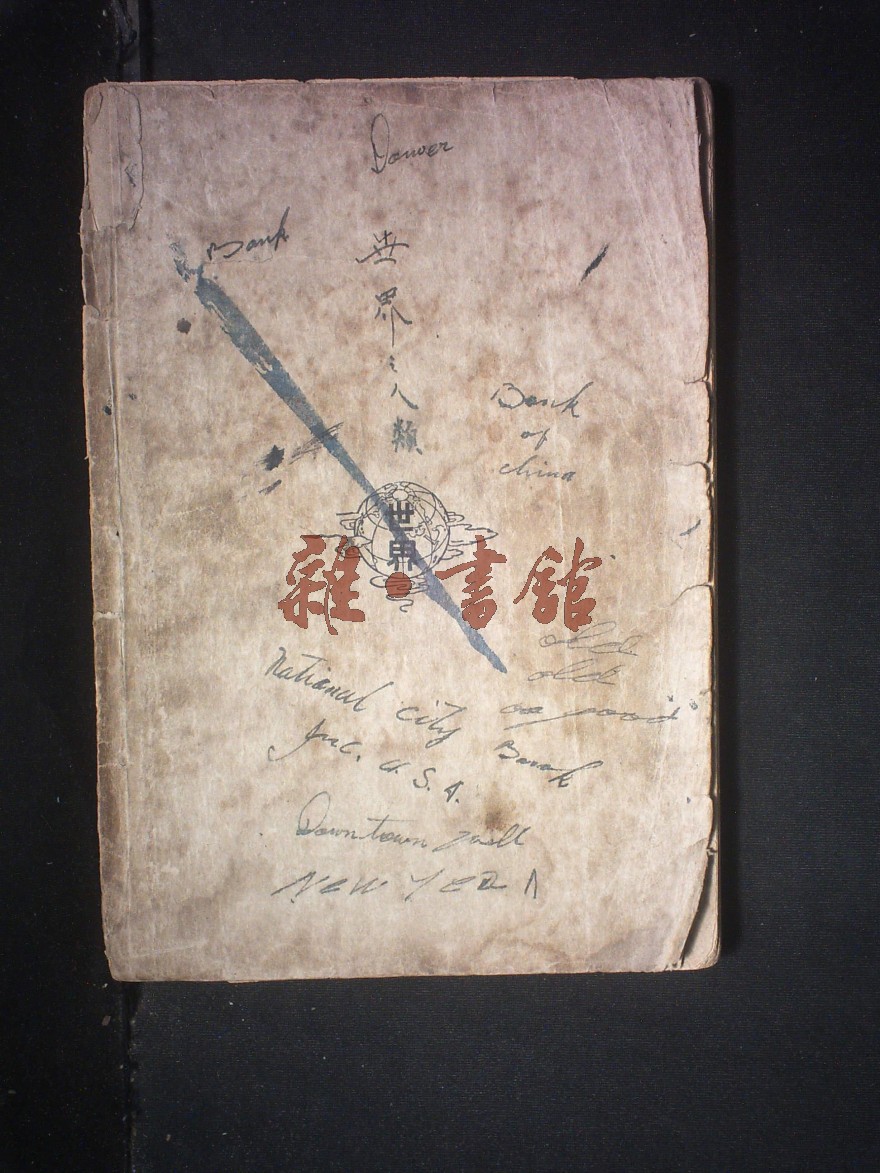 Bank
世界之人類
Bank
of
China
世界
雜·書館
old
old
as good
National City Bank
Inc. U.S.A.
Downtown
NEW YE